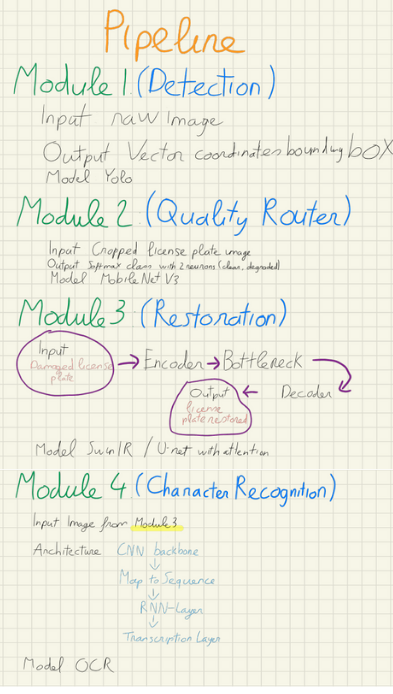 Pipeline
Module 1 (Detection)
Input raw Image
Output Vector coordinates bounding box
Model Yolo
Module 2 (Quality Router)
Input Cropped license plate image
Output Softmax class with 2 neurons (clean, degraded)
Model MobileNet V3
Module 3 (Restoration)
Input
Damaged license
plate
→ Encoder → Bottleneck
Decoder
← Output
license
plate restored
Model SwinIR / U-net with attention
Module 4 (Character Recognition)
Input Image from Module 3
Architecture CNN backbone
↓
Map to Sequence
↓
RNN-Layer
↓
Transcription Layer
Model OCR